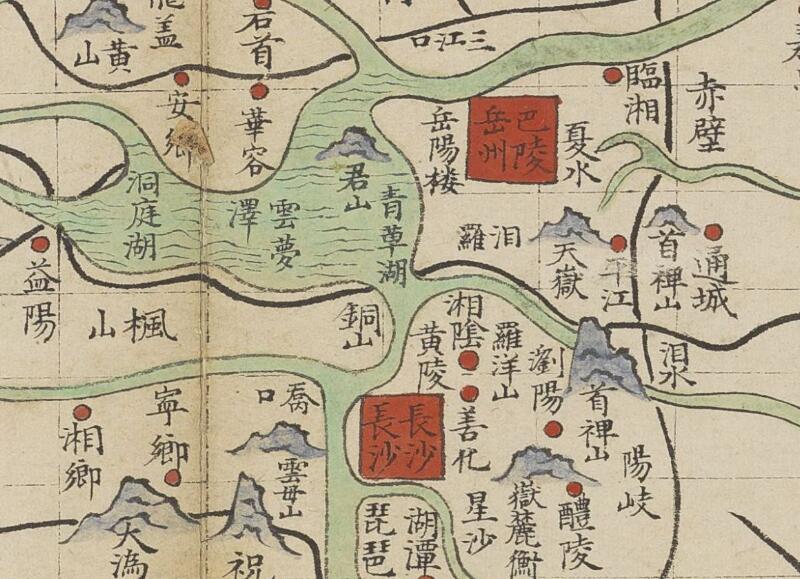 龍盖
黄山
石首
三江口
安鄉
華容
岳陽楼
巴陵
岳州
夏水
臨湘
赤壁
洞庭湖
雲夢
澤
君山
青草湖
汨羅
天嶽
平江
首裨山
通城
益陽
楓山
銅山
湘陰
黄陵
羅洋山
瀏陽
首裨山
汨水
湘鄉
寧鄉
喬口
雲母山
長沙
長沙
善化
星沙
嶽麓衡
醴陵
陽岐
大潙
祝
琵琶
湖潭